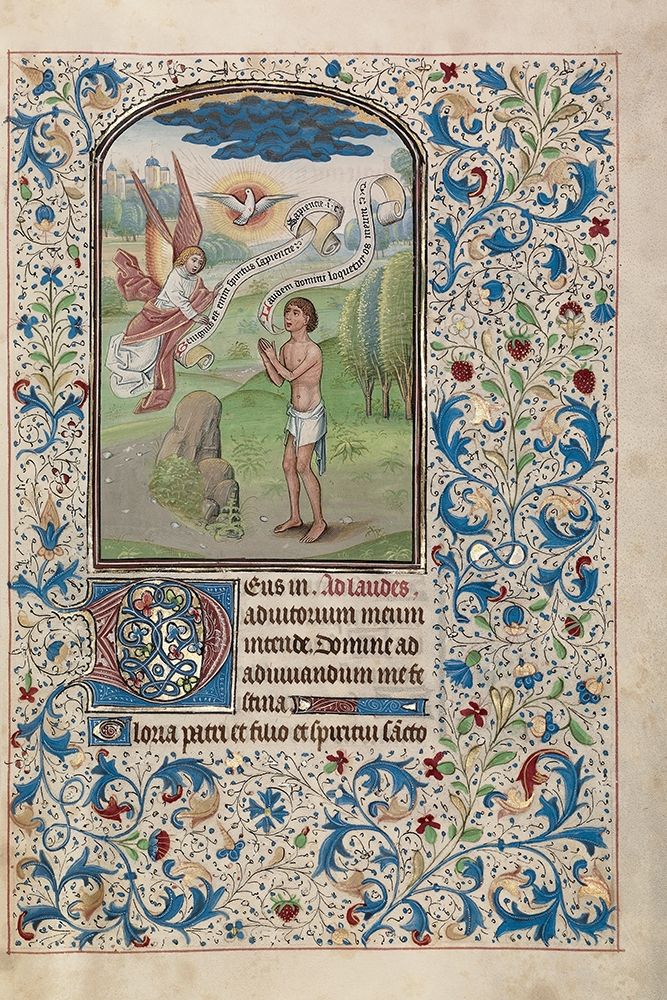 Benignus est enim spiritus sapiencie
Sapiencie. i. c
Laudem domini loquetur os meum
Deus in. Ad laudes.
adiutorium meum
intende. Domine ad
adiuuandum me fe
stina
Gloria patri et filio et spiritui sãcto